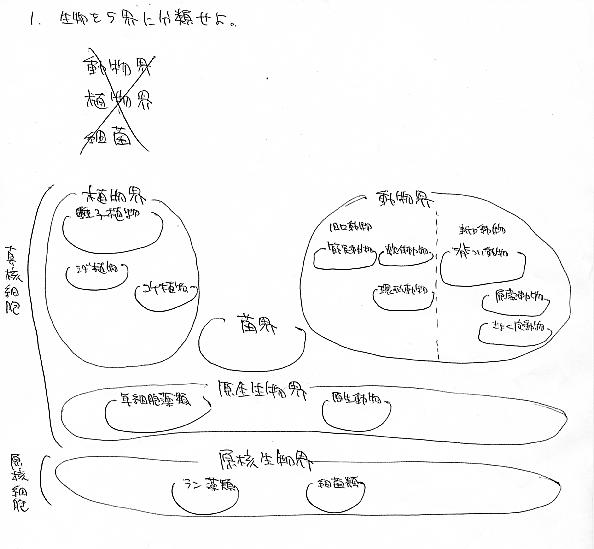 1. 生物を5界に分類せよ。
動物界
植物界
細菌
真核細胞
植物界
種子植物
シダ植物
コケ植物
動物界
旧口動物
新口動物
節足動物
軟体動物
環形動物
せきつい動物
原索動物
きょく皮動物
菌界
原生生物界
単細胞藻類
原生動物
原核細胞
原核生物界
ラン藻類
細菌類